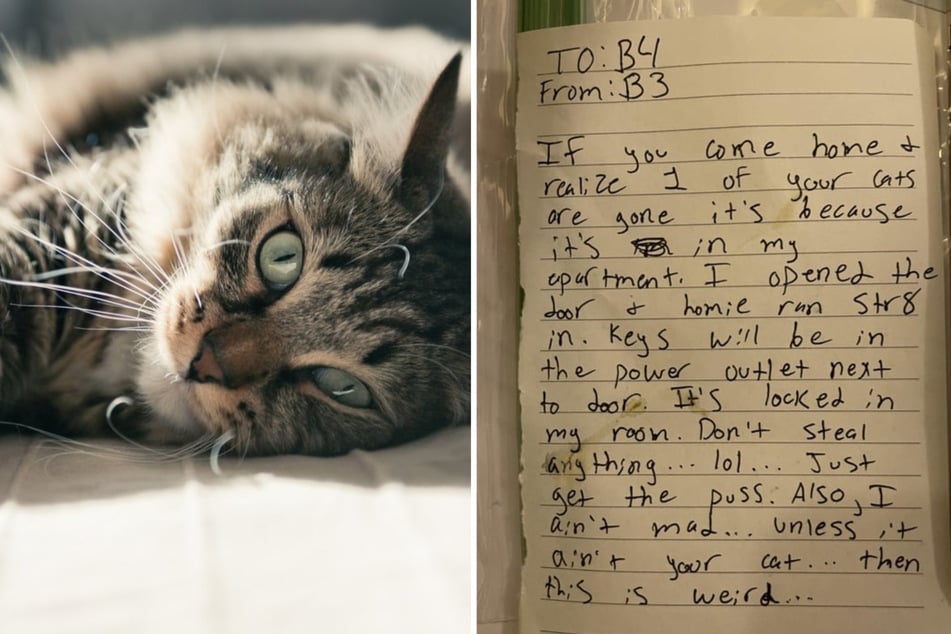 TO: B4
From: B3
If you come home &
realize 1 of your cats
are gone it's because
it's in my
apartment. I opened the
door & homie ran Str8
in. Keys will be in
the power outlet next
to door. It's locked in
my room. Don't steal
anything... lol... Just
get the puss. Also, I
ain't mad... unless it
ain't your cat... then
this is weird...